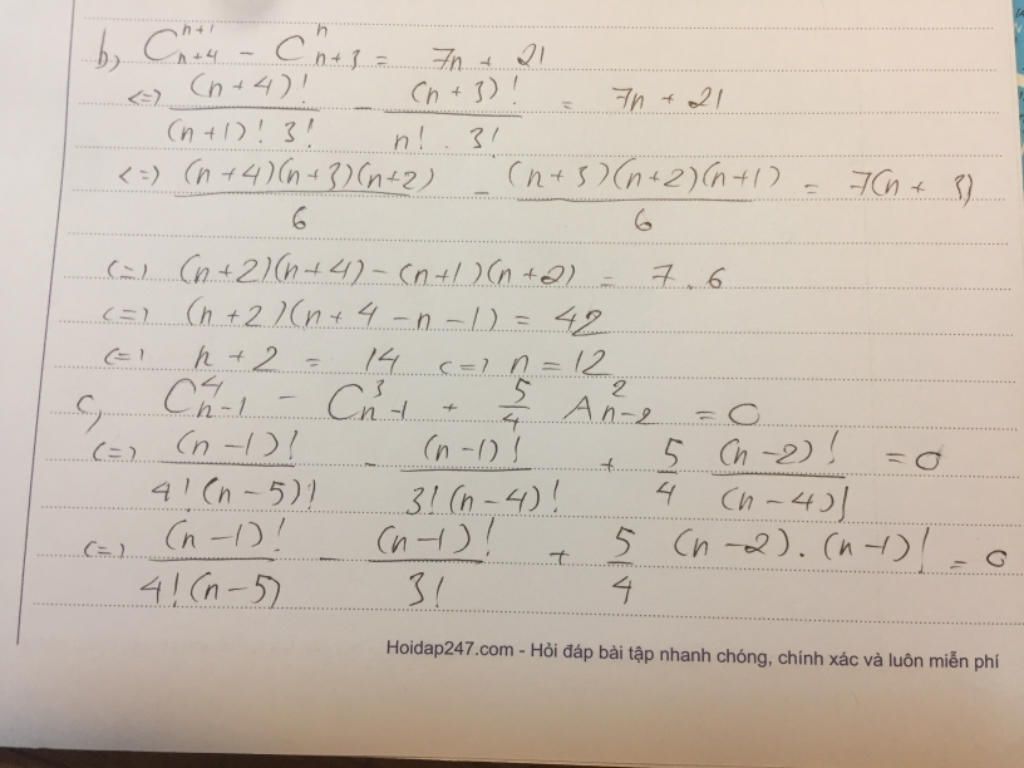 b, C_{n+4}^{n+1} - C_{n+3}^{n} = 7n + 21
<=> \frac{(n+4)!}{(n+1)! 3!} - \frac{(n+3)!}{n! . 3!} = 7n + 21
<=> \frac{(n+4)(n+3)(n+2)}{6} - \frac{(n+3)(n+2)(n+1)}{6} = 7(n + 3)
<=> (n+2)(n+4) - (n+1)(n+2) = 7 . 6
<=> (n+2)(n+4-n-1) = 42
<=> n + 2 = 14 <=> n = 12
c, C_{n-1}^{4} - C_{n-1}^{3} + \frac{5}{4} A_{n-2}^{2} = 0
<=> \frac{(n-1)!}{4!(n-5)!} - \frac{(n-1)!}{3!(n-4)!} + \frac{5}{4} \frac{(n-2)!}{(n-4)!} = 0
<=> \frac{(n-1)!}{4!(n-5)} - \frac{(n-1)!}{3!} + \frac{5}{4} (n-2).(n-1)! = 0
Hoidap247.com - Hỏi đáp bài tập nhanh chóng, chính xác và luôn miễn phí